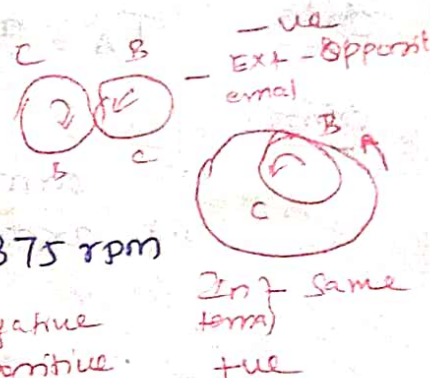 - ve
C B
- Ext - Opposit
ernal
B A
B C
C
375 rpm
Int - Same
ernal
gative
positive. +ve